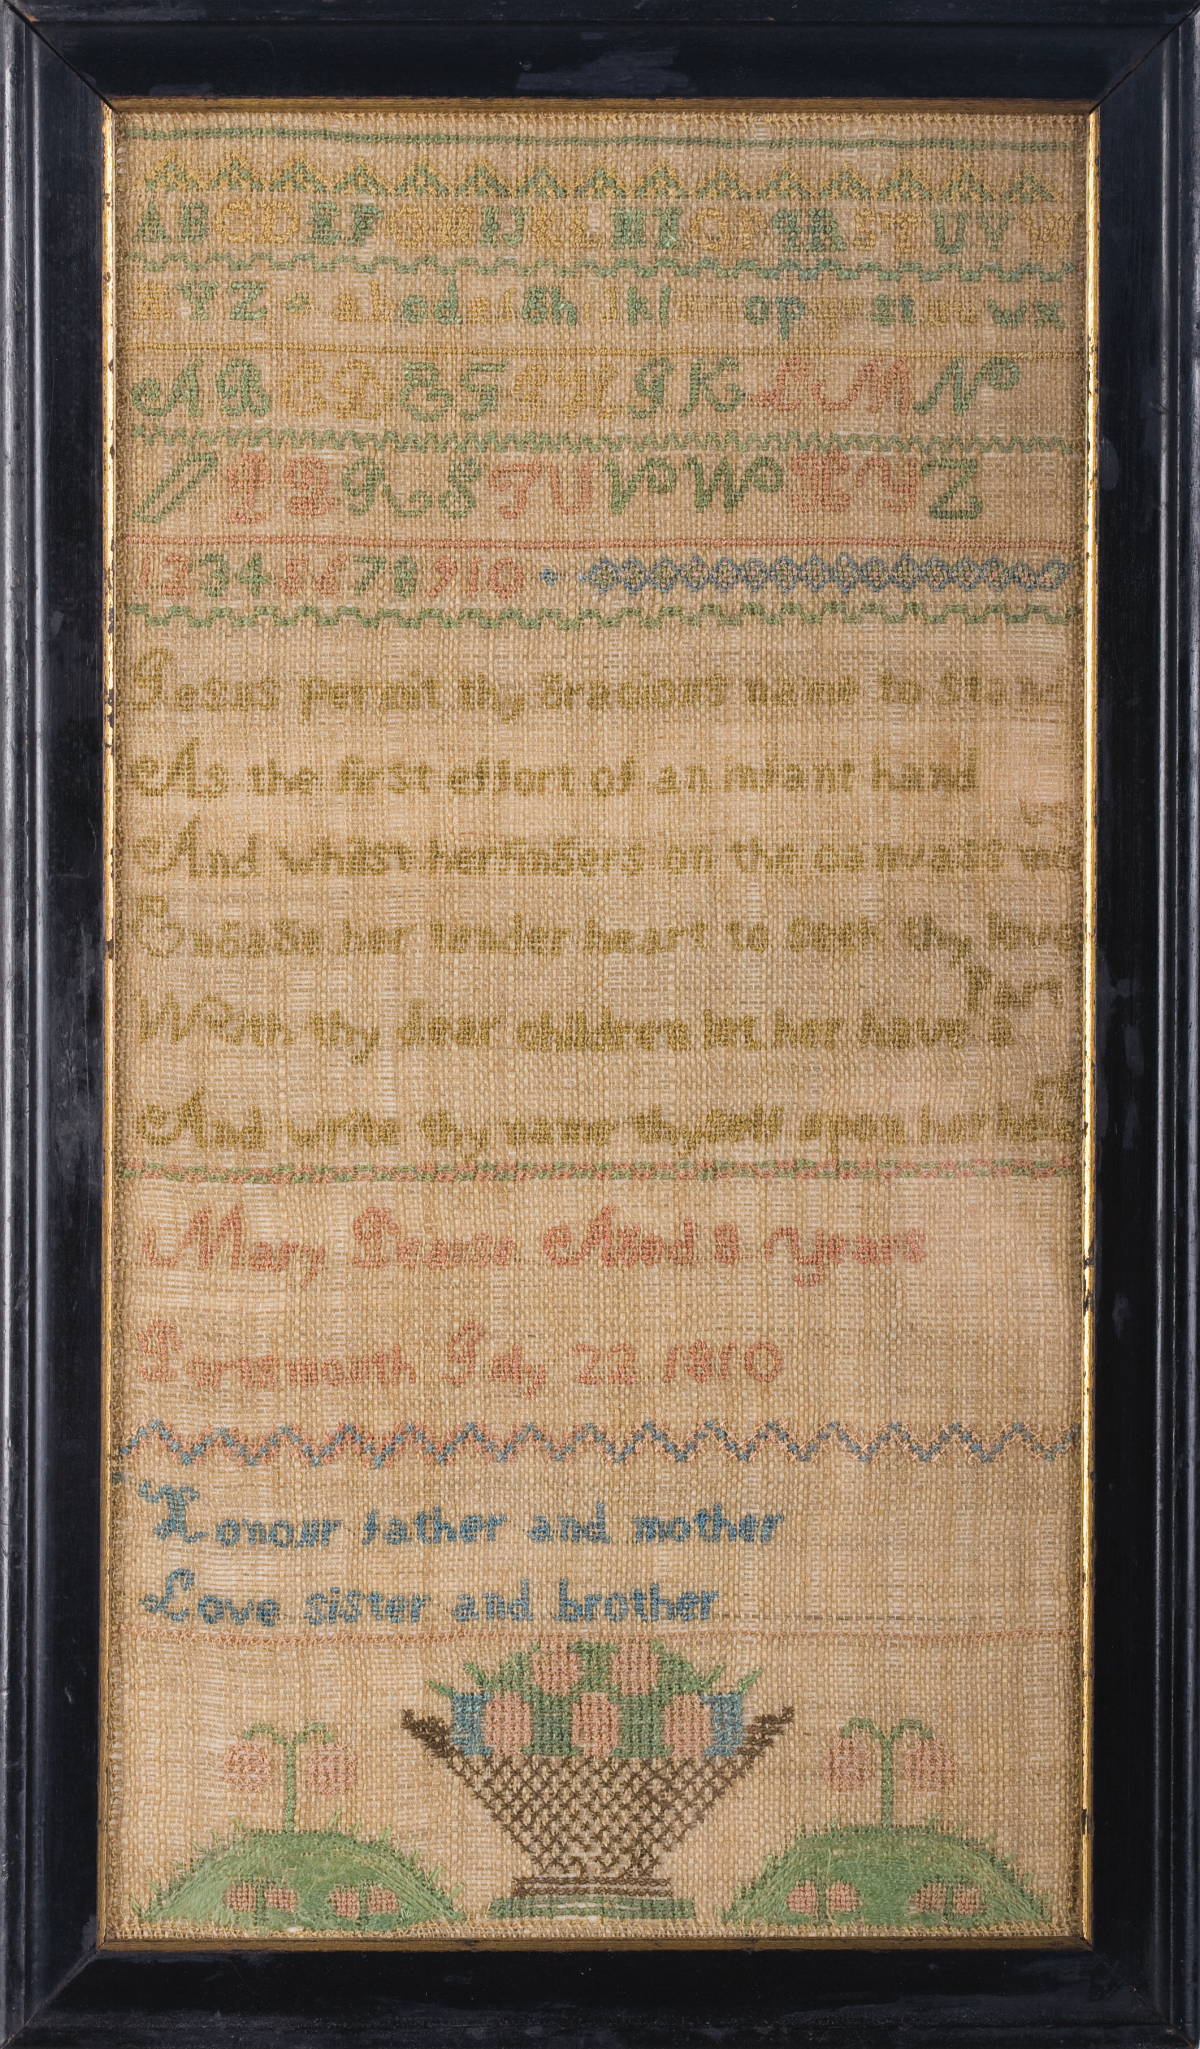 ABCDEFGHIJKLMNOPQRSTUVW
XYZ abcdefgh ikl op st wx
ABCDEFGHIKLMN
OPQRSTUVWXYZ
12345678910
Jesus permit thy Gracious name to Stand
As the first effort of an infant hand
And whilst her fingers on the canvass move
Engage her tender heart to Seek thy love
With thy dear children let her have a Part
And write thy name thyself upon her heart
Mary Aged 8 years
Portsmouth July 22 1810
Honour father and mother
Love sister and brother